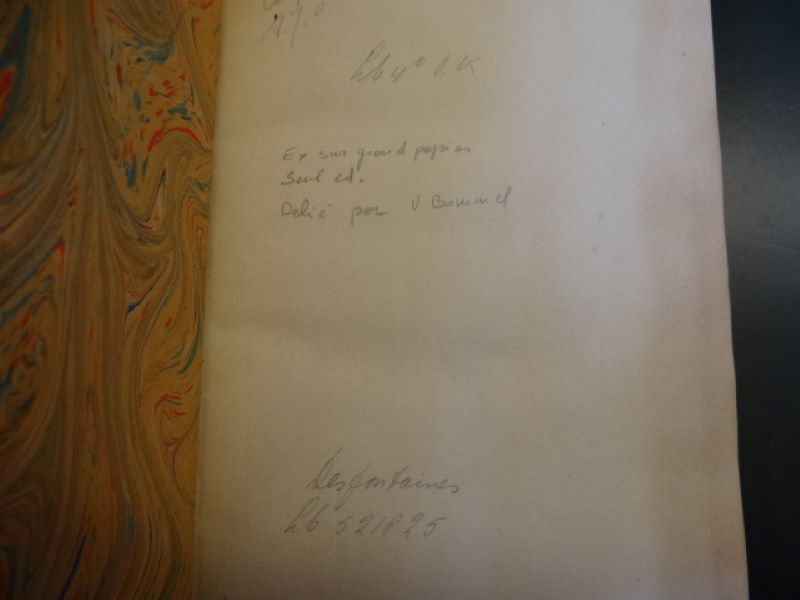 Ex sur grand papier
Seul ed.
Relié par V Bommel
Desfontaines
Lb 521825